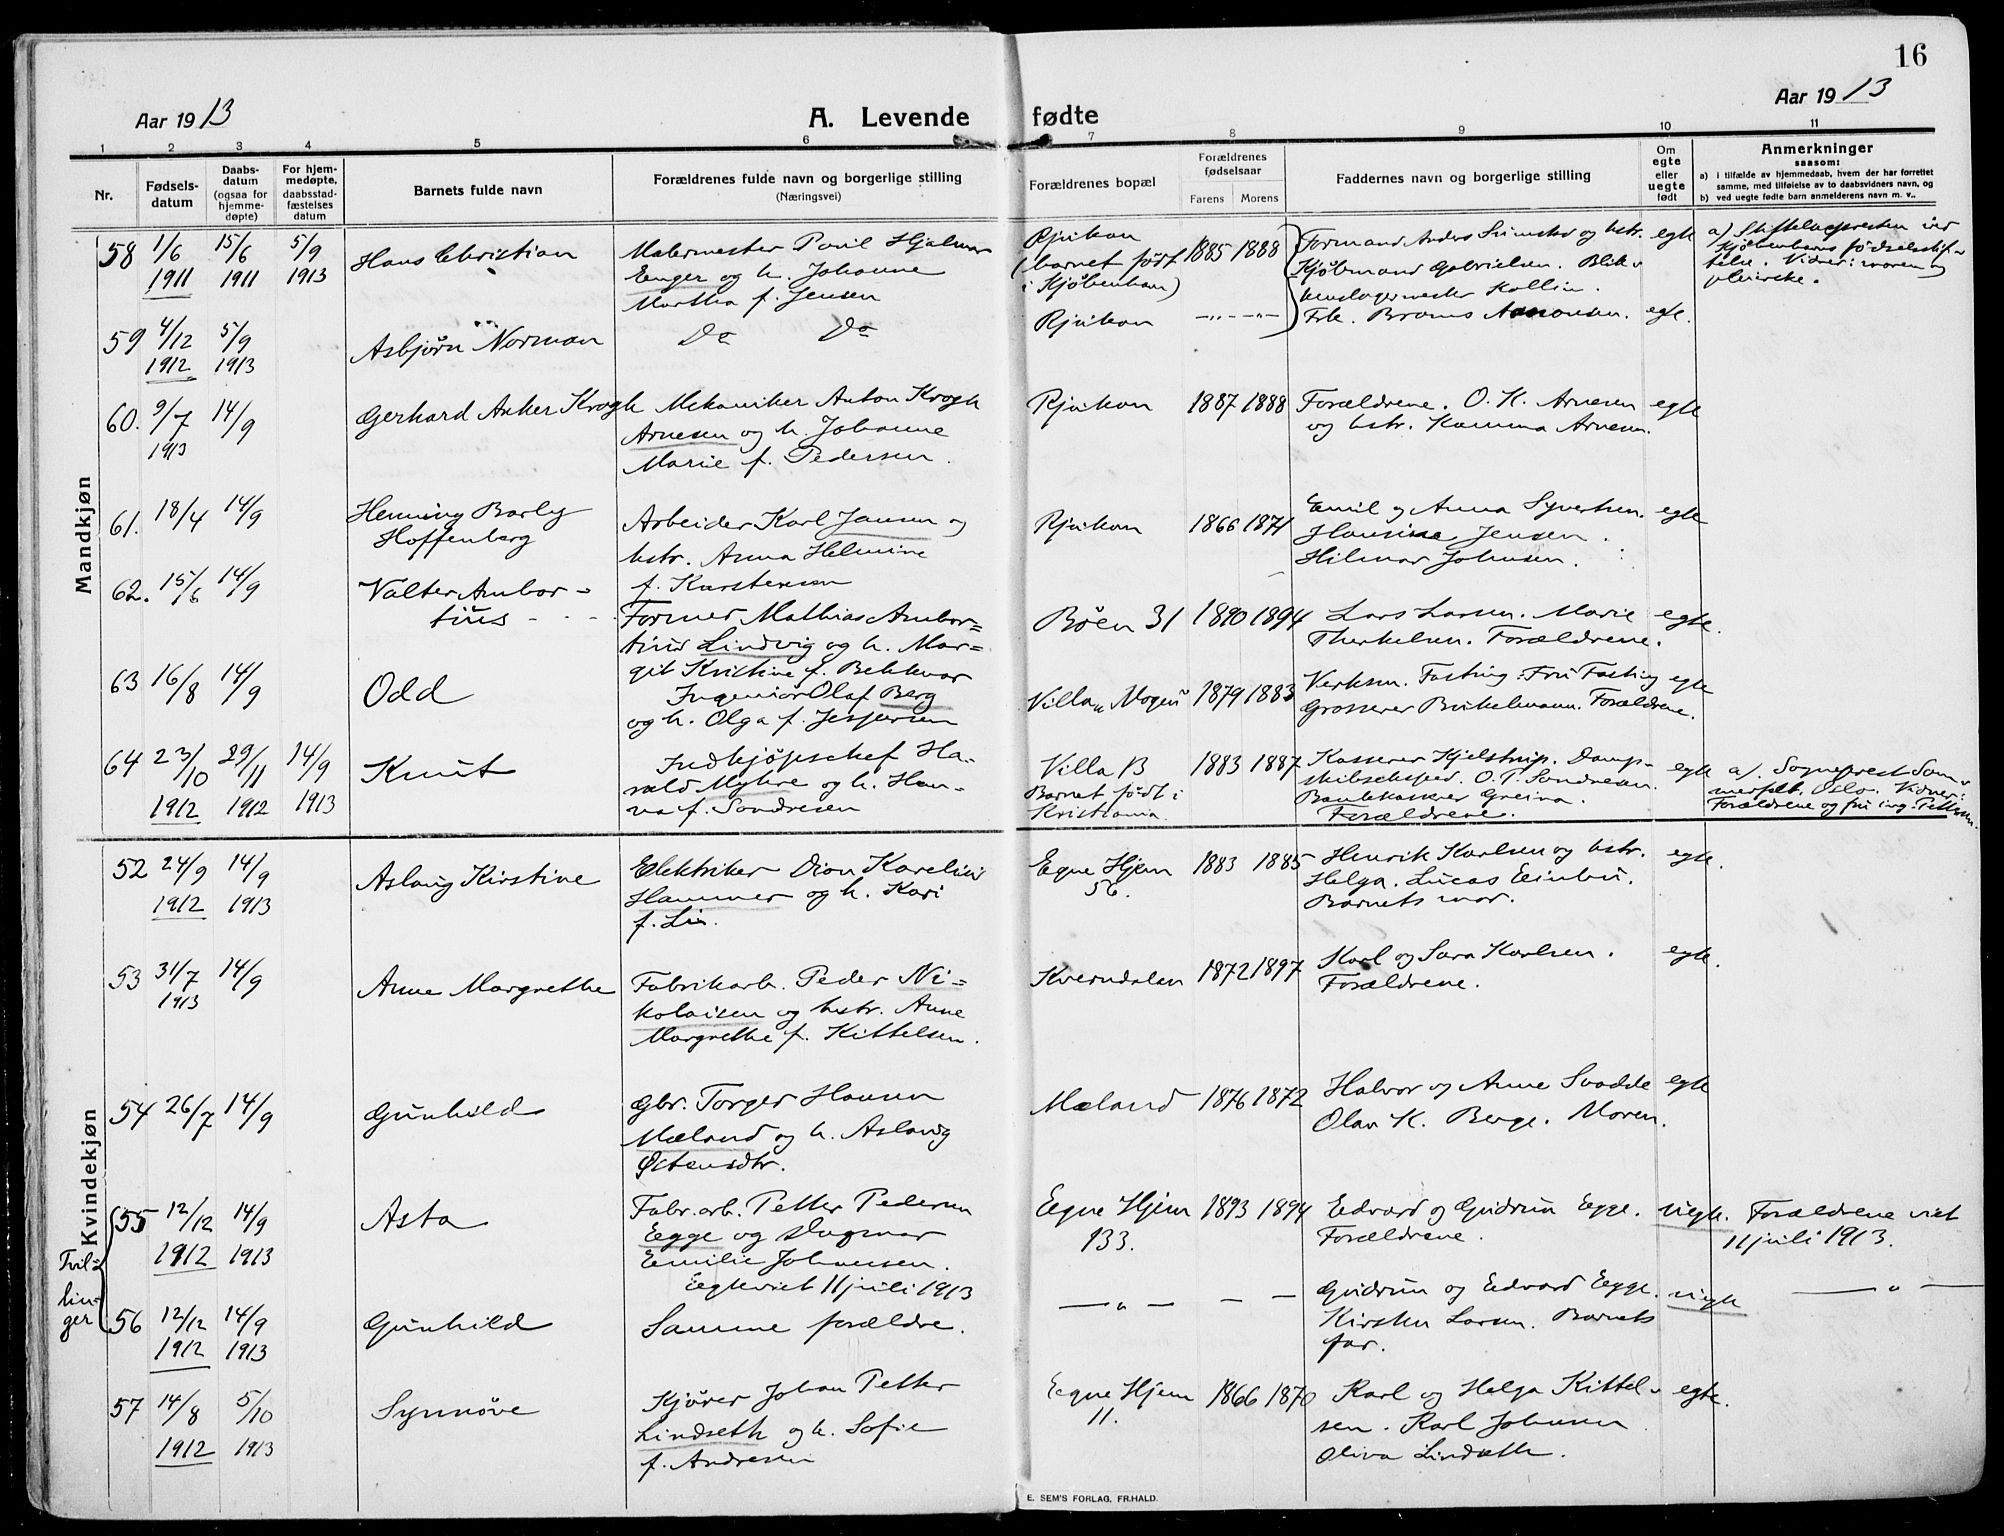 16
Aar 1913 A. Levende fødte Aar 1913
1 2 3 4 5 6 7 8 9 10 11
Nr. Fødsels-datum Daabs-datum (ogsaa for hjemme-døpte) For hjem-medøpte, daabsstad-fæstelses datum Barnets fulde navn Forældrenes fulde navn og borgerlige stilling (Næringsvei) Forældrenes bopæl Forældrenes fødselsaar Farens Morens Faddernes navn og borgerlige stilling Om egte eller uegte født Anmerkninger saasom:
a) i tilfælde av hjemmedaab, hvem der har forrettet samme, med tilføielse av to daabsvidners navn, og
b) ved uegte fødte barn anmelderens navn m. v..
Mandkjøn
58 1/6 1911 15/6 1911 5/9 1913 Hans Christian Malermester Povil Hjalmar
Enger og h. Johanne
Martha f. Jensen
Rjukan (barnet født i Kjøbenhavn) 1885 1888 Formand Anders og hstr.
Kjøbmand Gabrielsen. Blik-
kenslagermester Kollin.
Frk. Aamonsen.
egte a) Stiftelsespresten ved
Kjøbenhavns fødselsstif-
telse. Vidner: moren og
pleierske.
59 4/12 1912 5/9 1913 Asbjørn Norman Do Do Rjukan —„— —„— egte.
60. 9/7 1913 14/9 Gerhard Anker Krogh Mekaniker Anton Krogh
Arnesen og h. Johanne
Marie f. Pedersen.
Rjukan 1887 1888 Forældrene. O. K. Arnesen
og hstr. Kamma Arnesen.
egte
61. 18/4 14/9 Henning Barly
Hoffenberg
Arbeider Karl Jansen og
hstr. Anna Helmine
f. Karstensen
Rjukan 1866 1871 Emil og Anna Syvertsen.
Hansine Jensen.
Hilmar Johnsen.
egte
62. 15/6 14/9 Valter Ambor-
tius
Former Mathias Ambor-
tius Lindvig og h. Mar-
git Kristine f. Bekkvar
Bøen 31 1890 1894 Lars Larsen. Marie
Therkelsen. Forældrene.
egte.
63 16/8 14/9 Odd Ingeniør Olaf Berg
og h. Olga f. Jespersen
Villa „Mogen" 1879 1883 Verksm. Fasting. Fru Fasting
Grosserer Birkelmann. Forældrene.
egte
64 23/10 1912 29/11 1912 14/9 1913 Knut Indkjøpschef Ha-
rald Myhre og h. Han-
na f. Sondresen
Villa B
Barnet født i
Kristiania.
1883 1887 Kasserer Kjelstrup. Damp-
skibseksped. O. T. Sondresen.
Bankkasserer Greina.
Forældrene.
egte a). Sogneprest Som-
merfelt. Oslo. Vidner:
Forældrene og fru ing.
Kvindekjøn
52 24/9 1912 14/9 1913 Aslaug Kirstine Elektriker Dion Karelius
Hammer og h. Kari
f. Lie.
Egne Hjem
56.
1883 1885 Henrik Karlsen og hstr.
Helga. Lucas Einbu.
Barnets mor.
egte.
53 31/7 1913 14/9 Anne Margrethe Fabrikarb. Peder Ni-
kolaisen og hstr. Anne
Margrethe f. Kittelsen.
Kverndalen 1872 1897 Karl og Sara Karlsen.
Forældrene.
egte.
54 26/7 14/9 Gunhild Gbr. Torger Hansen
Mæland og h. Aslaug
Østensdtr.
Mæland 1876 1872 Halvor og Anne Svadde
Olav K. Berge. Moren.
egte
Tvil-
lin-
ger
55 12/12 1912 14/9 1913 Asta Fabr.arb. Petter Pedersen
Egge og Dagmar
Emilie Johansen.
Egteviet 11 juli 1913
Egne Hjem
133.
1893 1894 Edvard og Gudrun Egge.
Forældrene.
uegte. Forældrene viet
11 juli 1913.
56 12/12 1912 14/9 1913 Gunhild Samme forældre. —„— — — Gudrun og Edvard Egge.
Kirsten Larsen. Barnets
far.
uegte —„—
57 14/8 1912 5/10 1913 Synnøve Kjører Johan Petter
Lindseth og h. Sofie
f. Andresen
Egne Hjem
11.
1866 1870 Karl og Helga Kittel-
sen. Karl Johansen
Oliva Lindseth.
egte.
E. SEM'S FORLAG, FR.HALD.